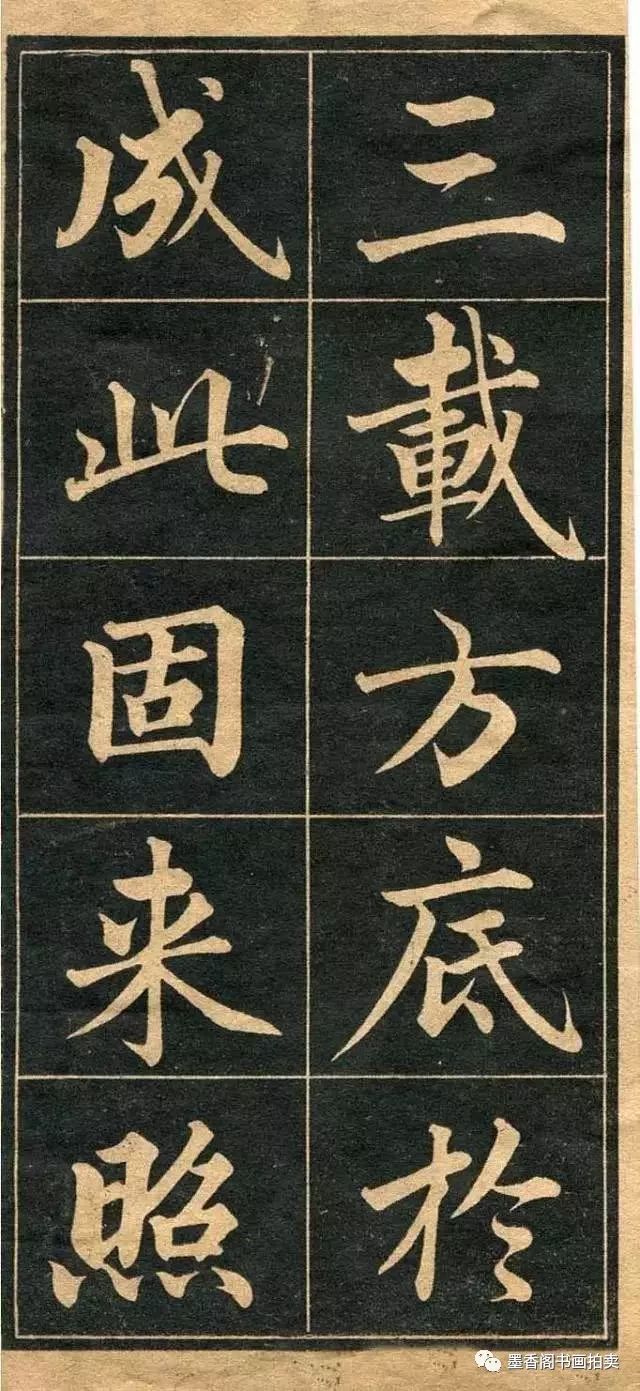 三載方底於
成此固来照
墨香阁书画拍卖